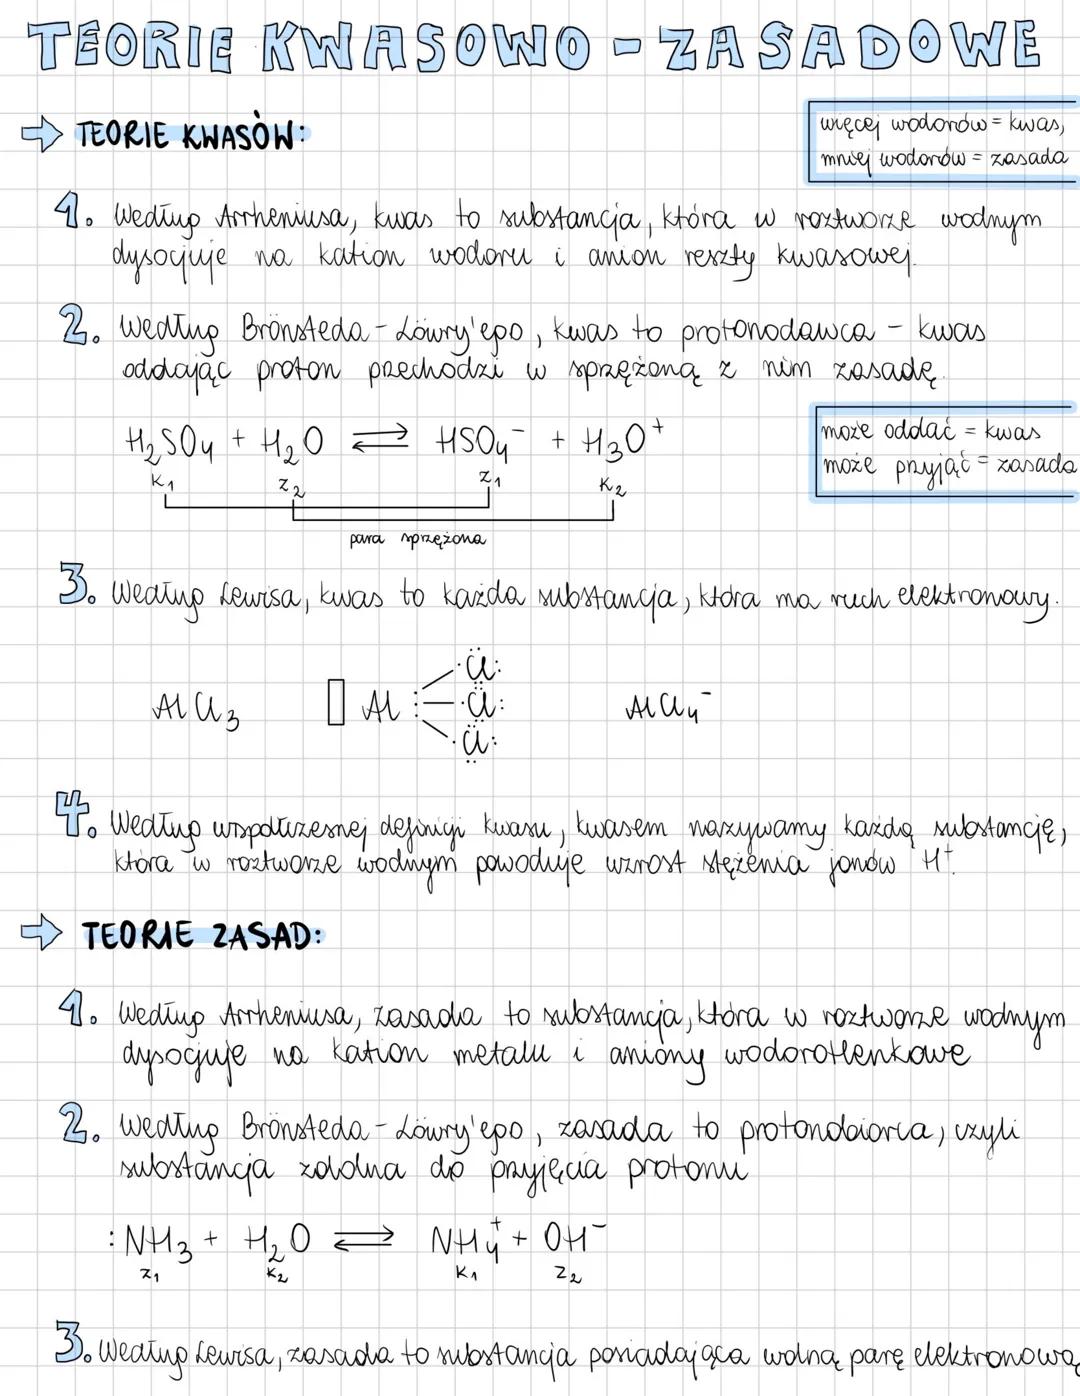 TEORIE KWASOWO - ZASADOWE
→ TEORIE KWASÓW:
więcej wodorów = kwas,
mniej wodorów = zasada
1. Według Arrheniusa, kwas to substancja, która w roztworze wodnym
dysocjuje na kation wodoru i anion reszty kwasowej.
2. Według Brönsteda - Löwry'ego, kwas to protonodawca - kwas
oddając proton przechodzi w sprzężoną z nim zasadę.
H₂SO₄ + H₂O ⇌ HSO₄⁻ + H₃O⁺
K₁ Z₂ Z₁ K₂
para sprzężona
może oddać = kwas
może przyjąć = zasada
3. Według Lewisa, kwas to każda substancja, która ma ruch elektronowy.
AlCl₃ Al Cl Cl Cl AlCl₄⁻
4. Według współczesnej definicji kwasu, kwasem nazywamy każdą substancję,
która w roztworze wodnym powoduje wzrost stężenia jonów H⁺.
→ TEORIE ZASAD:
1. Według Arrheniusa, zasada to substancja, która w roztworze wodnym
dysocjuje na kation metalu i aniony wodorotlenkowe
2. Według Brönsteda - Löwry'ego, zasada to protonobiorca, czyli
substancja zdolna do przyjęcia protonu
:NH₃ + H₂O ⇌ NH₄⁺ + OH⁻
Z₁ K₂ K₁ Z₂
3. Według Lewisa, zasada to substancja posiadająca wolną parę elektronową